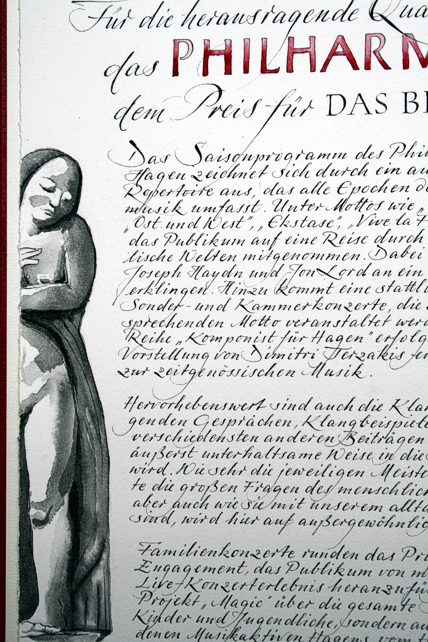 Für die herausragende Qua
das PHILHARM
dem Preis für DAS BE
Das Saisonprogramm des Phil
Hagen zeichnet sich durch ein au
Repertoire aus, das alle Epochen de
musik umfasst. Unter Mottos wie „
"Ost und West", „Ekstase", „Vive la F
das Publikum auf eine Reise durch
lische Welten mitgenommen. Dabei
Joseph Haydn und Jon Lord an ein
erklingen. Hinzu kommt eine stattli
Sonder- und Kammerkonzerte, die
sprechenden Motto veranstaltet werd
Reihe „Komponist für Hagen" erfolg
Vorstellung von Dimitri Terzakis
zur zeitgenössischen Musik.
Hervorhebenswert sind auch die Klan
genden Gesprächen, Klangbeispiele
verschiedensten anderen Beiträgen
äußerst unterhaltsame Weise in die
wird. Wie sehr die jeweiligen Meiste
te die großen Fragen des menschlich
aber auch wie sie mit unserem allta
sind, wird hier auf außergewöhnlic
Familienkonzerte runden das Pro
Engagement, das Publikum von m
Live-Konzerterlebnis heranzufü
Projekt „Magic" über die gesamte
Kinder und Jugendliche, sondern au
denen Musikaktiven Hagens von